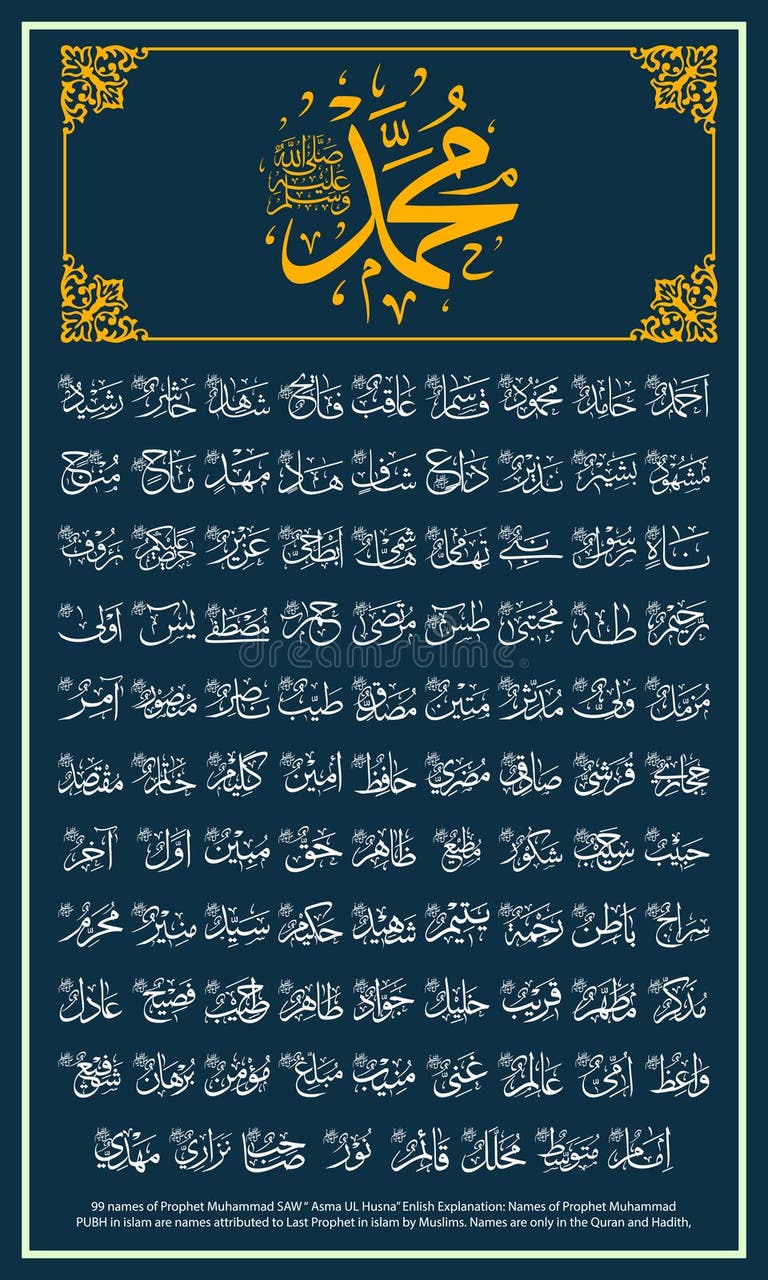 مُحَمَّد صَلَّى اللّٰه عَلَيْهِ وَسَلَّم
اَحْمَدٌ حَامِدٌ مَحْمُودٌ قَاسِمٌ عَاقِبٌ فَاتِحٌ شَاهِدٌ حَاشِرٌ رَشِيدٌ
مَشْهُودٌ بَشِيرٌ نَذِيرٌ دَاعٍ شَافٍ هَادٍ مَهْدٍ مَاحٍ مُنْجٍ
نَاهٍ رَسُولٌ نَبِيٌّ تِهَامِيٌّ هَاشِمِيٌّ اَبْطَحِيٌّ عَزِيزٌ رَؤُوفٌ
رَحِيمٌ طٰهٰ مُجْتَبٰى طٰسٓ مُرْتَضٰى حٰمٓ مُصْطَفٰى يٰسٓ اَوْلٰى
مُزَّمِّلٌ وَلِيٌّ مُدَّثِّرٌ مَتِينٌ مُصَدِّقٌ طَيِّبٌ نَاصِرٌ مَنْصُورٌ آمِرٌ
حِجَازِيٌّ قُرَشِيٌّ صَادِقٌ مُضَرِيٌّ حَافِظٌ أَمِينٌ كَلِيمٌ مُقْتَصِدٌ
حَبِيبٌ شَكُورٌ مُطِيعٌ ظَاهِرٌ حَقٌّ مُبِينٌ اَوَّلٌ آخِرٌ
سِرَاجٌ بَاطِنٌ رَحْمَةٌ يَتِيمٌ شَهِيدٌ حَكِيمٌ سَيِّدٌ مُنِيرٌ مُحَرَّمٌ
مُذَكِّرٌ مُطَهَّرٌ قَرِيبٌ خَلِيلٌ جَوَادٌ طَاهِرٌ فَصِيحٌ عَادِلٌ
وَاعِظٌ اُمِّيٌّ عَالِمٌ غَنِيٌّ مُنِيبٌ مُبَلِّغٌ مُؤْمِنٌ بُرْهَانٌ
اِمَامٌ مُتَوَسِّطٌ مُحَلِّلٌ قَائِمٌ نُوْرٌ صَاحِبٌ نِزَارِيٌّ مَهْدِيٌّ
dreamstime
99 names of Prophet Muhammad SAW “ Asma UL Husna” Enlish Explanation: Names of Prophet Muhammad
PUBH in islam are names attributed to Last Prophet in islam by Muslims. Names are only in the Quran and Hadith,